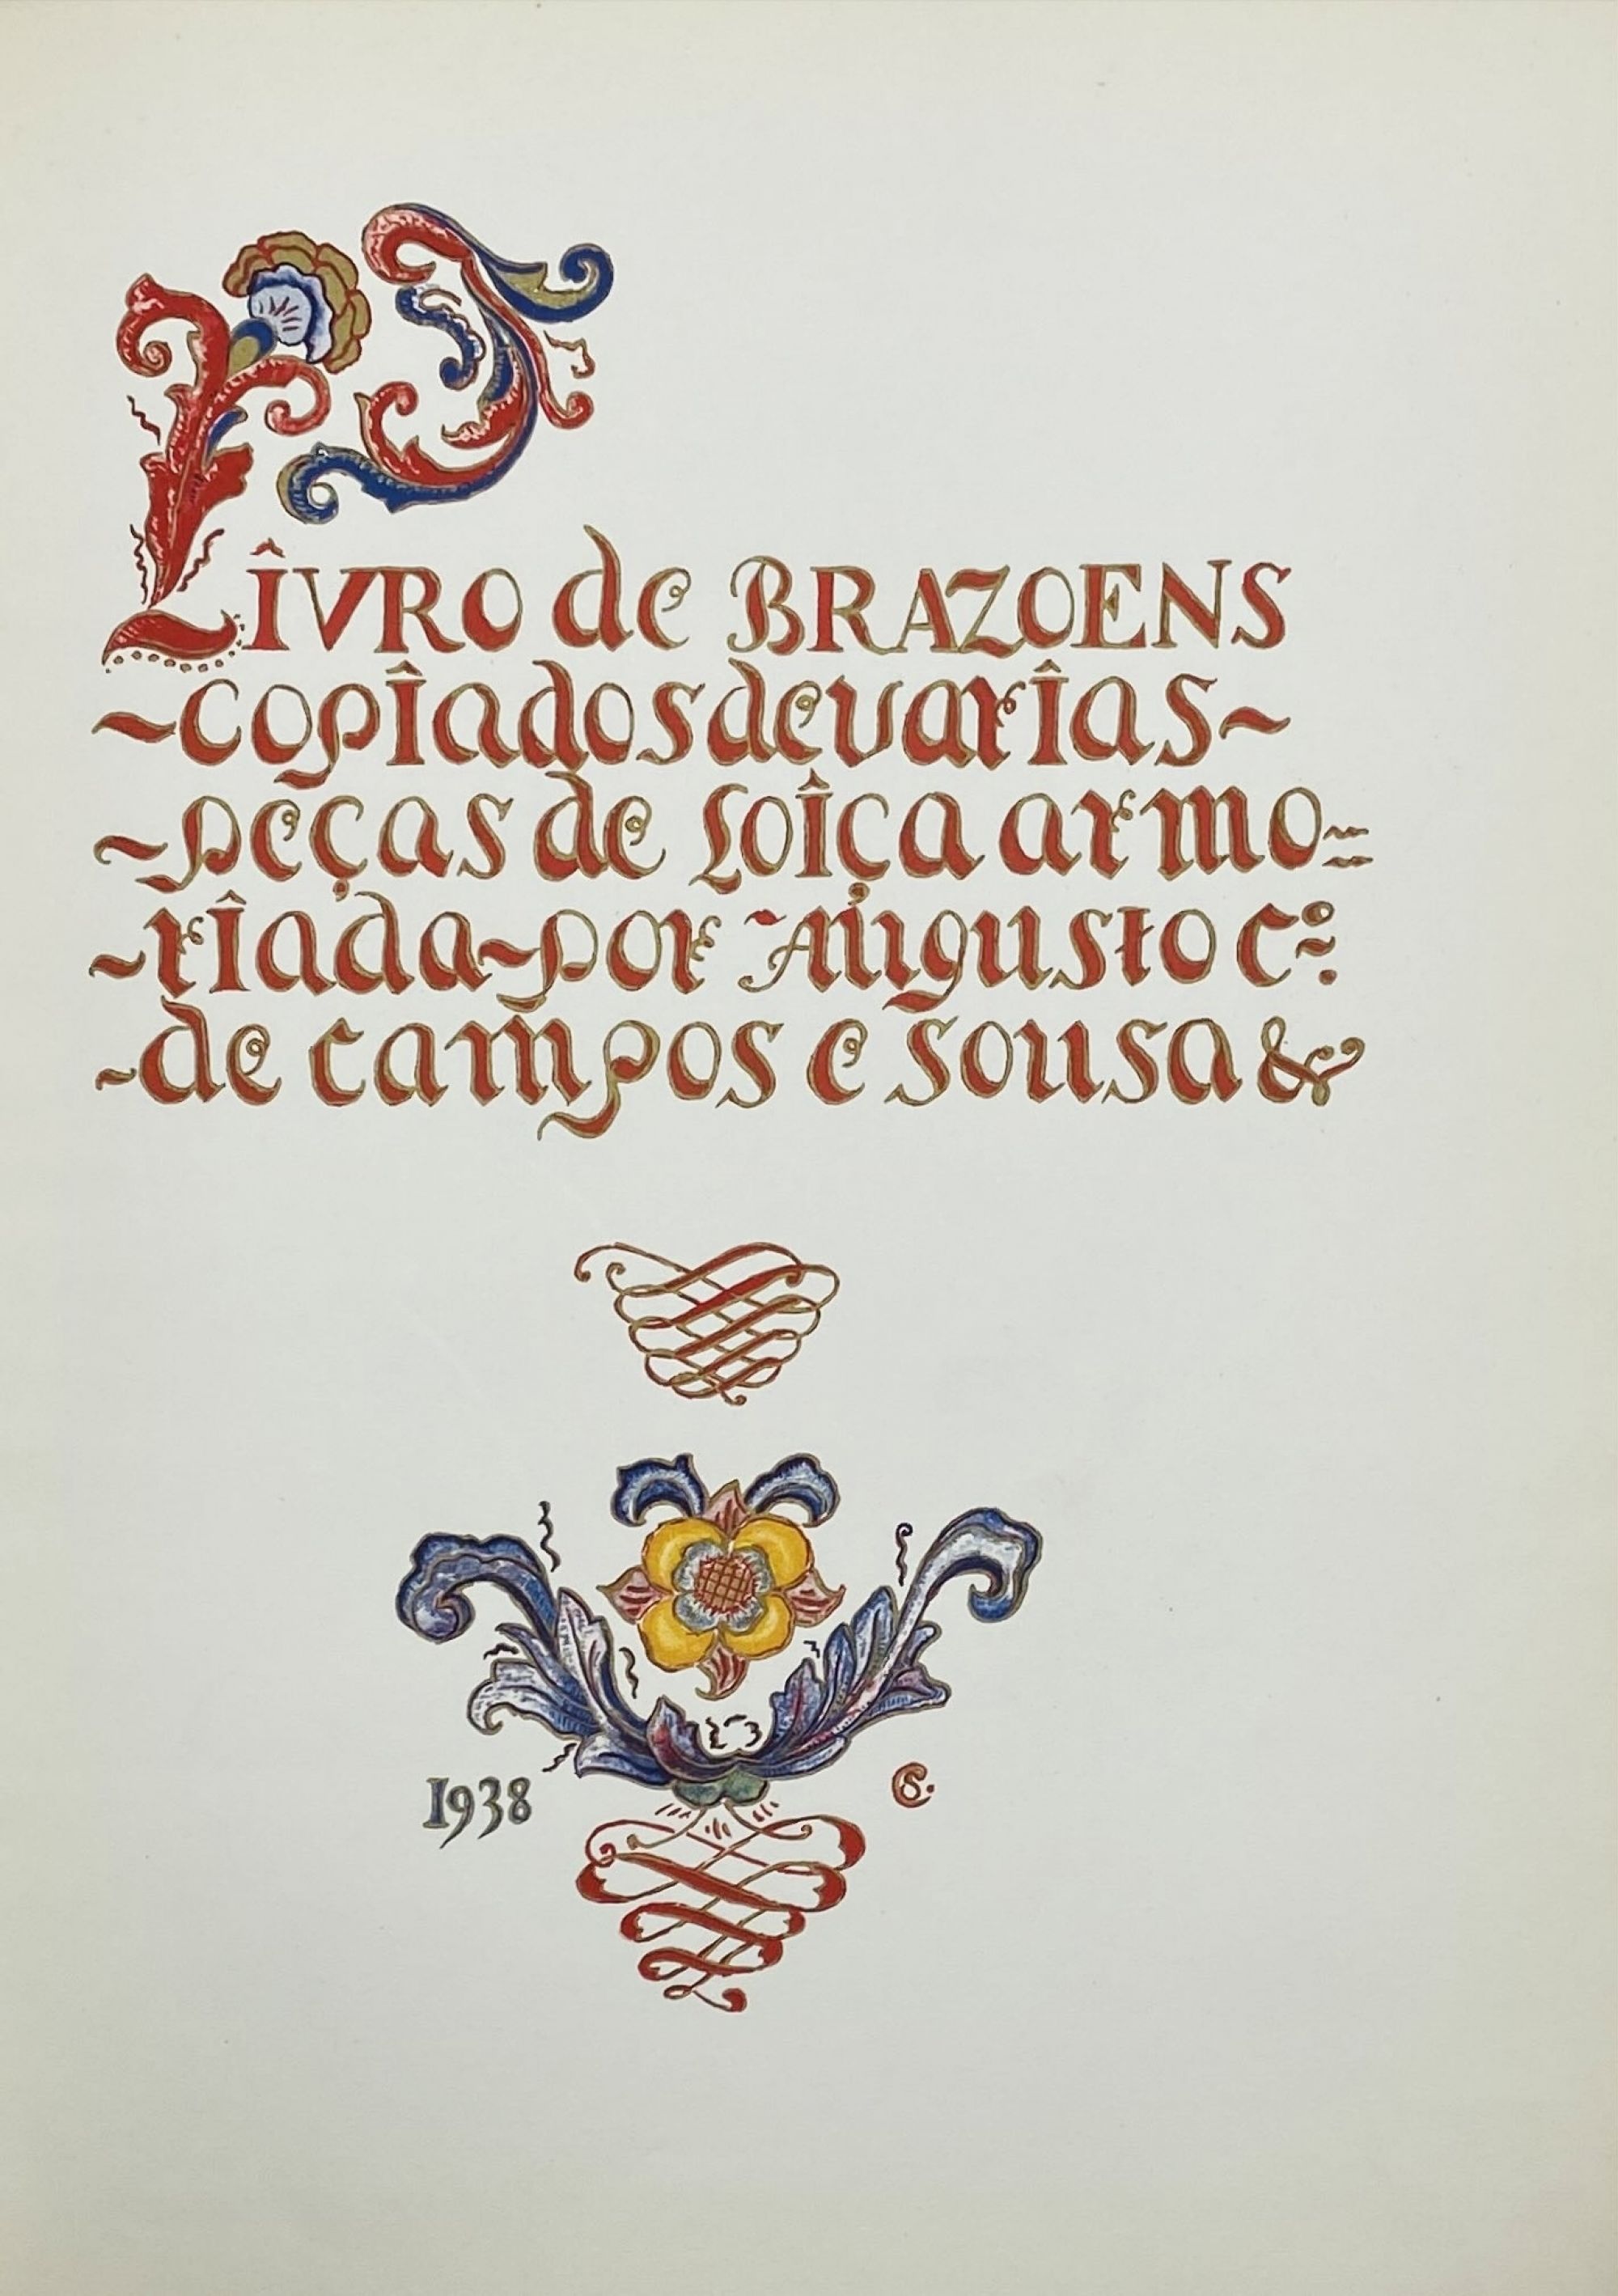 LÎVRO de BRAZOENS
~copîados de varîas~
~peças de Loîça armo=
~rîada~por Augusto C.º
~de campos e sousa &
1938
CS.